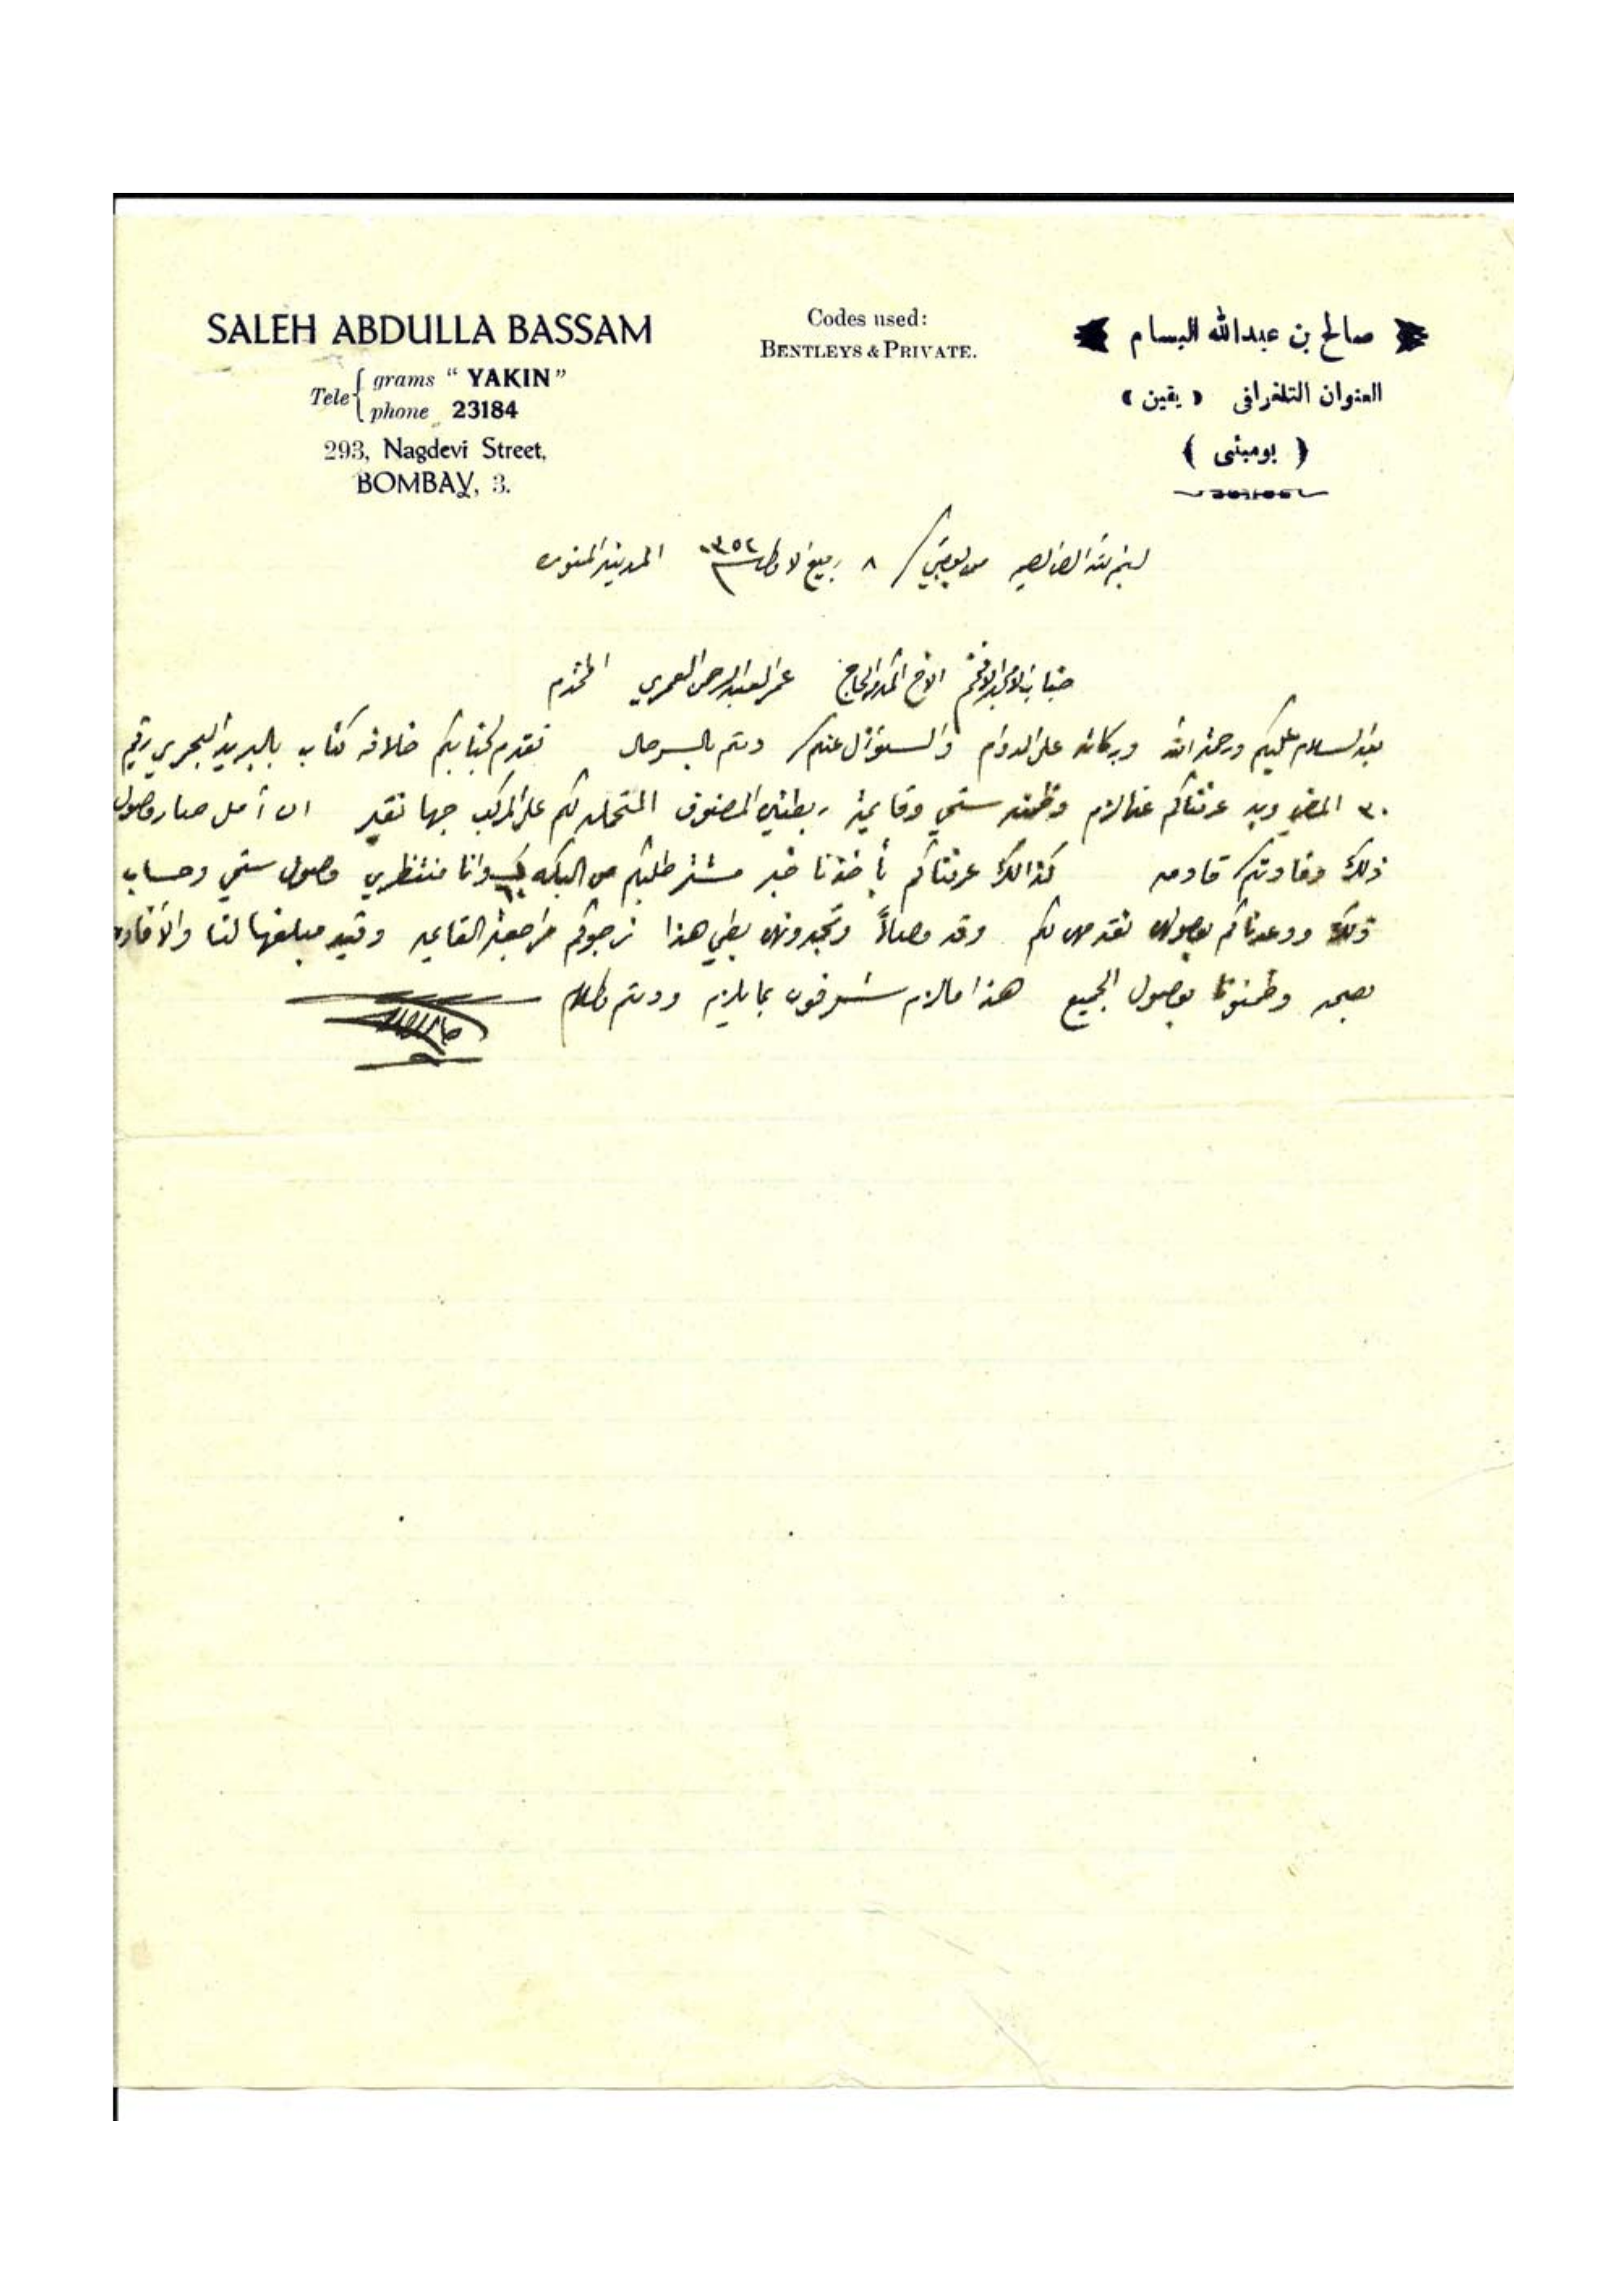 SALEH ABDULLA BASSAM
Tele grams “ YAKIN ”
phone 23184
293, Nagdevi Street,
BOMBAY, 3.
Codes used:
BENTLEYS & PRIVATE.
صالح بن عبدالله البسام
العنوان التلغرافى « يقين »
( بومبئى )
٨ ربيع الاول ١٣٥٢ المدينة المنورة
جناب الامجد الافخم الاخ المكرم الحاج عمر العبد الرحمن العمري المحترم
بعد السلام عليكم ورحمة الله وبركاته على الدوام والسؤال عنكم دمتم بالسر حال تقدم لجنابكم خلافه كتاب بالبريد البحري رقيم
٣٠ الماضي وبه عرفناكم عما لزم وضمنه ستمي وقايمة ربطتين المصنوف المتحملة لكم على المركب جهانقير ان أمل صار وصول
ذلك وفادتكم قادمه كذالك عرفناكم بأخذنا خبر مشتر طلبكم من وانا منتظرين وصول ستمي وحساب
ذلك ووعدناكم بوصولهن نقدمهن لكم وقد وصلاً وتجدونهن بطي هذا نرجوكم مراجعة القايمه وقيد مبلغها لنا والأفاده
بصحه وطمنونا بوصول الجميع هذا مالزم شرفون بما يلزم ودمتم